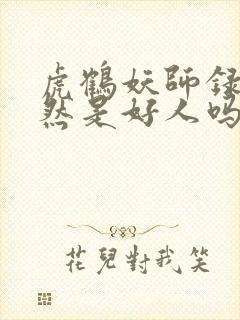 虎鶴妖師錄
然是好人吗
花兒對我笑